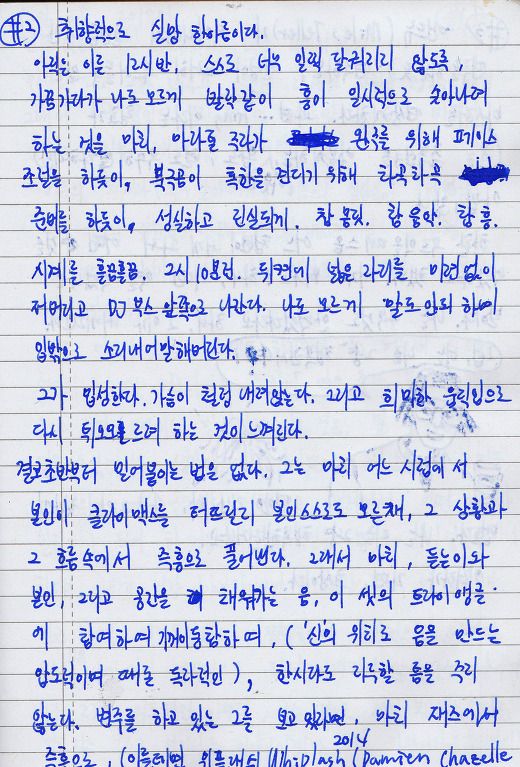 #2 취향적으로 실망 한이름이다.
아직은 이른 12시반. 스스로 너무 일찍 달궈지지 않도록,
가끔가다가 나도 모르게 발작같이 흥이 일시적으로 솟아나려
하는 것을 마치, 마라톤 주자가 완주를 위해 페이스
조절을 하듯이, 북극곰이 혹한을 견디기 위해 차곡차곡
준비를 하듯이, 성실하고 진실되게. 참 몸짓. 참 음악. 참 흥.
시계를 흘끔흘끔. 2시 10분전. 뒤켠에 넓은 자리를 미련없이
져버리고 DJ 부스 앞쪽으로 나간다. 나도 모르게 말도 안돼 하며
입밖으로 소리내어 말해버린다.
그가 입성한다. 가슴이 철렁 내려앉는다. 그리고 희미한 움직임으로
다시 튀어오르려 하는 것이 느껴진다.
결코 초반부터 밀어붙이는 법은 없다. 그는 마치 어느 시점에서
본인이 클라이맥스를 터뜨릴지 본인스스로도 모른채, 그 상황과
그 흐름속에서 즉흥으로 풀어썬다. 그래서 마치, 듣는이와
본인, 그리고 공간을 채워가는 음, 이 셋의 트라이앵글
에 합여하여 기꺼이 동참하며, ('신'의 위치로 음을 만드는
압도적이며 때로 독자적인), 한시라도 지루할 틈을 주지
않는다. 변주를 하고 있는 그를 보고 있자면, 마치 재즈에서
즉흥으로, (이를테면 위플래쉬 (Whiplash 2014 (Damien Chazelle